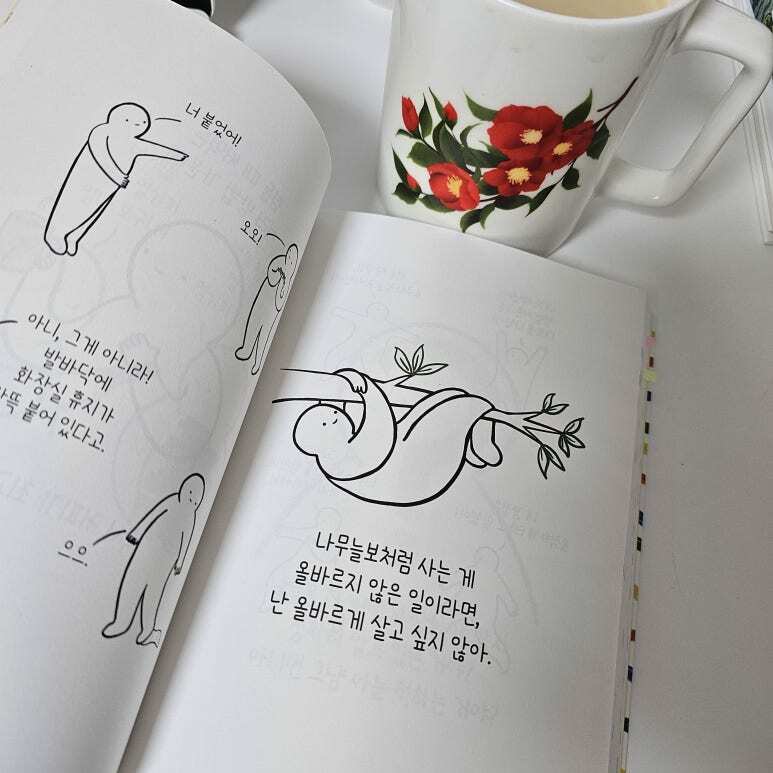 너 붙었어!
오오!
아니, 그게 아니라!
발바닥에
화장실 휴지가
붙어 있다고.
으으.
나무늘보처럼 사는 게
올바르지 않은 일이라면,
난 올바르게 살고 싶지 않아.